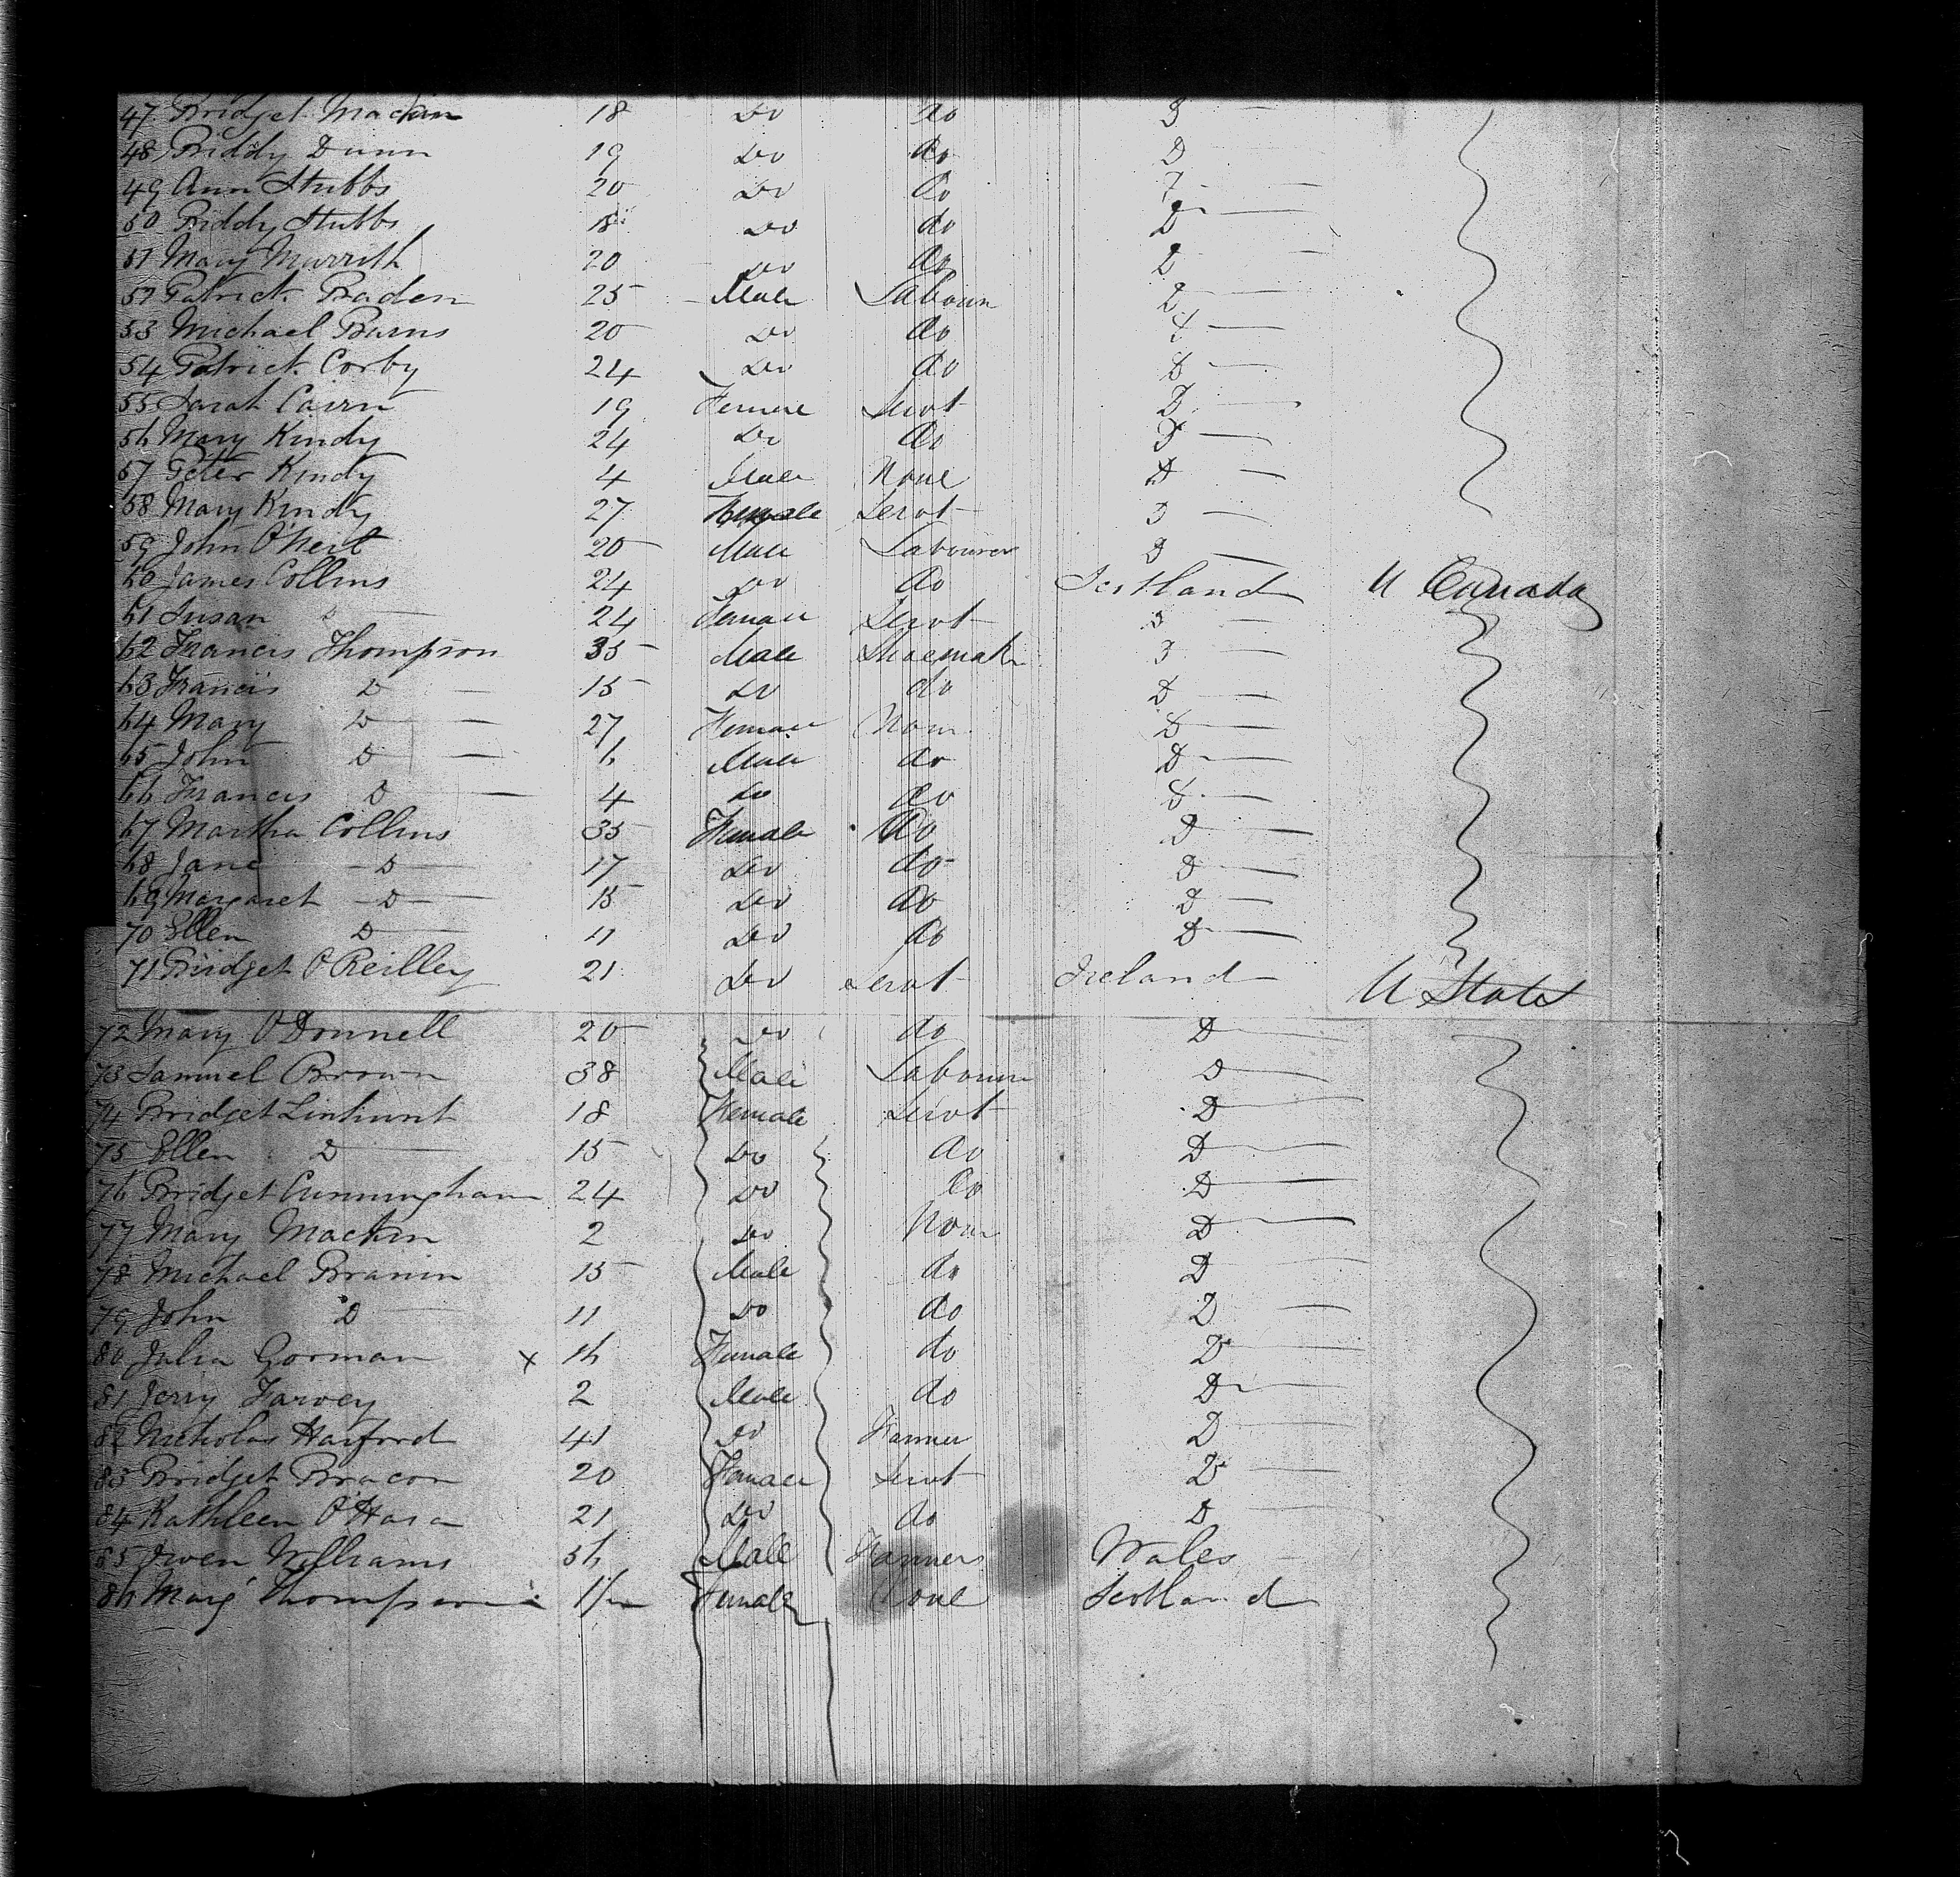 47 Bridget Mackin 18 Do do D
48 Biddy Dunn 19 Do do D
49 Ann Stubbs 20 Do do D
50 Biddy Stubbs 18 Do do D
51 Mary Murrith 20 Do do D
52 Patrick Braden 25 Male Labourer D
53 Michael Burns 20 Do do D
54 Patrick Corby 24 Do do D
55 Sarah Cairn 19 Female Servt D
56 Mary Kindy 24 Do do D
57 Peter Kindy 4 Male None D
58 Mary Kindy 27 Female Servt D
59 John O'Neil 20 Male Labourer D
60 James Collins 24 Do do Scotland U Canada
61 Susan D 24 Female Servt D
62 Francis Thompson 35 Male Shoemaker D
63 Francis D 15 Do do D
64 Mary D 27 Female None D
65 John D 6 Male do D
66 Francis D 4 Do do D
67 Martha Collins 35 Female do D
68 Jane D 17 Do do D
69 Margaret D 15 Do do D
70 Ellen D 11 Do do D
71 Bridget O'Reilley 21 Do Servt Ireland U States
72 Mary O'Donnell 20 Do do D
73 Samuel Brown 38 Male Labourer D
74 Bridget Linhunt 18 Female Servt D
75 Ellen D 15 Do do D
76 Bridget Cunningham 24 Do do D
77 Mary Mackin 2 Do None D
78 Michael Branin 15 Male do D
79 John D 11 Do do D
80 Julia Gorman x 16 Female do D
81 Jerry Farvey 2 Male do D
82 Nicholas Harford 41 Do Farmer D
83 Bridget Bracon 20 Female Servt D
84 Kathleen O'Hara 21 Do do D
85 Owen Williams 56 Male Farmer Wales
86 Mary Thompson Female None Scotland